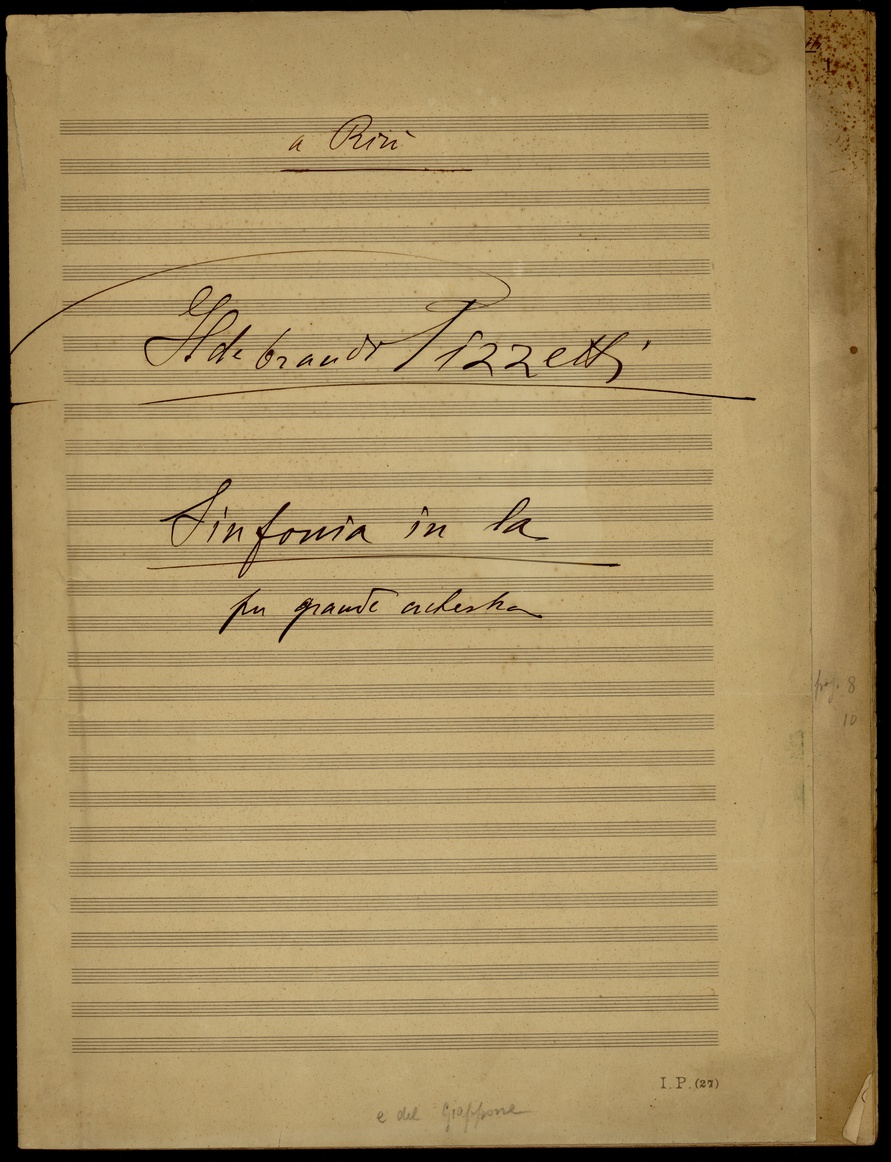 a Rirì
Ildebrando Pizzetti
Sinfonia in la
per grande orchestra
pag. 8
10
I.P. (27)
e del Giappone